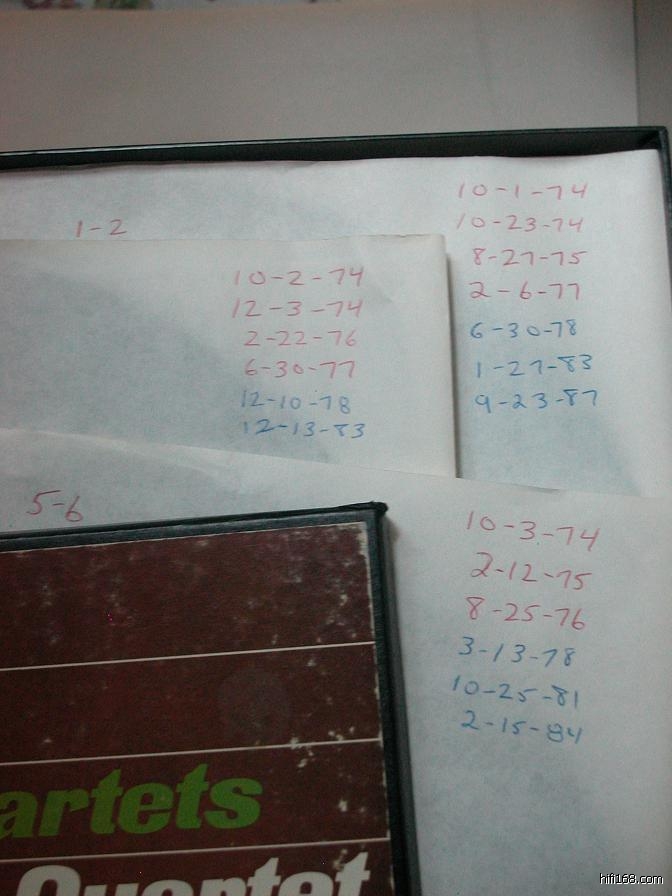 1-2
10-1-74
10-23-74
8-27-75
2-6-77
6-30-78
1-27-83
9-23-87
10-2-74
12-3-74
2-22-76
6-30-77
12-10-78
12-13-83
5-6
10-3-74
2-12-75
8-25-76
3-13-78
10-25-81
2-15-84
artets
Quartet
hifi168.com